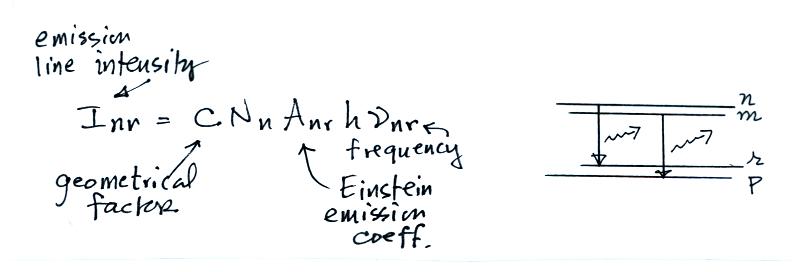 emission
line intensity
I_nr = C N_n A_nr h ν_nr
frequency
geometrical
factor
Einstein
emission
coeff.
n
m
r
p